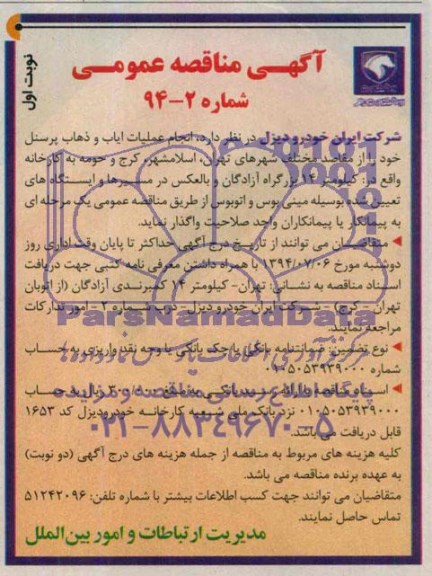 نوبت اول
آگهی مناقصه عمومی
شماره ۲-۹۴
شرکت ایران خودرو دیزل در نظر دارد، انجام عملیات ایاب و ذهاب پرسنل
خود را از مقاصد مختلف شهرهای تهران، اسلامشهر، کرج و حومه به کارخانه
واقع در: کیلومتر ۱۴ بزرگراه آزادگان و بالعکس در مسیرها و ایستگاه های
تعیین شده بوسیله مینی بوس و اتوبوس از طریق مناقصه عمومی یک مرحله ای
به پیمانکار یا پیمانکاران واجد صلاحیت واگذار نماید.
متقاضیان می توانند از تاریخ درج آگهی حداکثر تا پایان وقت اداری روز
دوشنبه مورخ ۱۳۹۴/۰۷/۰۶ با همراه داشتن معرفی نامه کتبی جهت دریافت
اسناد مناقصه به نشانی: تهران- کیلومتر ۱۴ کمربندی آزادگان (از اتوبان
تهران - کرج) - شرکت ایران خودرو دیزل - درب شماره ۲ - امور تدارکات
مراجعه نمایند.
نوع تضمین: ضمانتنامه بانکی یا چک بانکی یا وجه نقد واریزی به حساب
شماره ۰۱۰۵۰۵۳۹۳۹۰۰۰
اسناد مناقصه با ارائه بانکی به مبلغ ریال به حساب
۰۱۰۵۰۵۳۹۳۹۰۰۰ نزد بانک ملی شعبه کارخانه خودرو دیزل کد ۱۶۵۳
قابل دریافت می باشد.
کلیه هزینه های مربوط به مناقصه از جمله هزینه های درج آگهی (دو نوبت)
به عهده برنده مناقصه می باشد.
متقاضیان می توانند جهت کسب اطلاعات بیشتر با شماره تلفن: ۵۱۲۴۲۰۹۶
تماس حاصل نمایند.
مدیریت ارتباطات و امور بین الملل
ParsNamadData
پایگاه اطلاع رسانی مناقصه و مزایده
۰۲۱-۸۸۳۴۹۶۷۰-۵